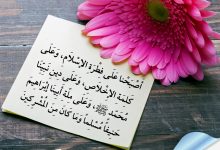 أَصْبَحْنَا عَلَى فِطْرَةِ الإِسْلَامِ، وَعَلَى
كَلِمَةِ الإِخْلَاصِ، وَعَلَى دِينِ نَبِيِّنَا
مُحَمَّدٍ ﷺ، وَعَلَى مِلَّةِ أَبِينَا إِبْرَاهِيمَ
حَنِيفًا مُسْلِمًا وَمَا كَانَ مِنَ المُشْرِكِينَ